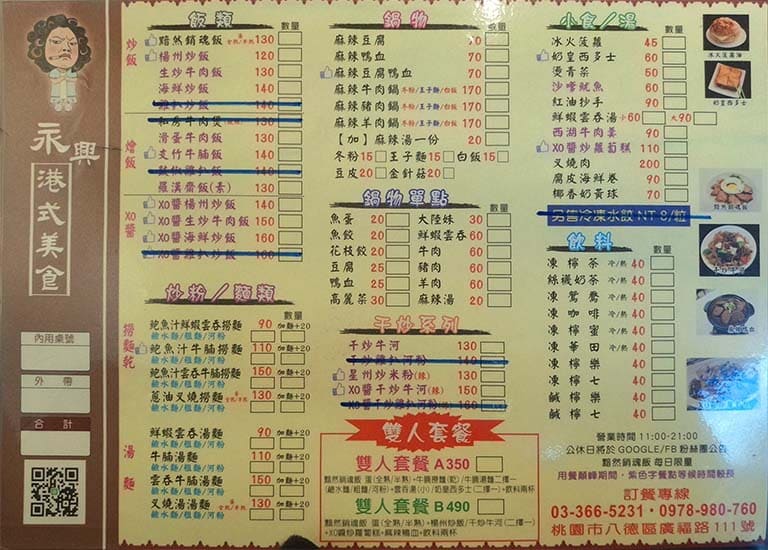 永興
港式美食
內用桌號
外帶
合計
飯類 數量
炒飯
黯然銷魂飯 蛋 全熟/半熟 130
楊州炒飯 120
生炒牛肉飯 130
海鮮炒飯 140
雞扒炒飯 140
燴飯
和房牛肉煲 140
滑蛋牛肉飯 130
支竹牛腩飯 140
豉椒雞扒飯 140
羅漢齋飯(素) 130
XO醬
XO醬楊州炒飯 140
XO醬生炒牛肉飯 150
XO醬海鮮炒飯 160
XO醬雞扒炒飯 160
炒粉/麵類
數量
撈麵乾
鮑魚汁鮮蝦雲吞撈麵 90 加麵+20
鹼水麵/粗麵/河粉
鮑魚汁牛腩撈麵 110 加麵+20
鹼水麵/粗麵/河粉
鮑魚汁雲吞牛腩撈麵 150 加麵+20
鹼水麵/粗麵/河粉
蔥油叉燒撈麵 蛋 全熟/半熟 130 加麵+20
鹼水麵/粗麵/河粉
湯麵
鮮蝦雲吞湯麵 90 加麵+20
鹼水麵/粗麵/河粉
牛腩湯麵 110 加麵+20
鹼水麵/粗麵/河粉
雲吞牛腩湯麵 150 加麵+20
鹼水麵/粗麵/河粉
叉燒湯湯麵 蛋 全熟/半熟 130 加麵+20
鹼水麵/粗麵/河粉
鍋物 數量
麻辣豆腐 70
麻辣鴨血 70
麻辣豆腐鴨血 70
麻辣牛肉鍋 冬粉/王子麵/白飯 170
麻辣豬肉鍋 冬粉/王子麵/白飯 170
麻辣羊肉鍋 冬粉/王子麵/白飯 170
【加】麻辣湯一份 20
冬粉15 王子麵15 白飯15
豆皮20 金針菇20
鍋物單點
數量 數量
魚蛋 20 大陸妹 30
魚餃 20 鮮蝦雲吞 60
花枝餃 20 牛肉 60
豆腐 25 豬肉 60
鴨血 25 羊肉 60
高麗菜 30 麻辣湯 20
干炒系列 數量
干炒牛河 130
干炒雞扒河粉 140
星州炒米粉(辣) 130
XO醬干炒牛河(辣) 150
XO醬干炒雞扒河粉(辣) 160
雙人套餐
雙人套餐 A350
黯然銷魂飯 蛋(全熟/半熟)+牛腩撈麵(乾)/牛腩湯麵二擇一
(鹼水麵/粗麵/河粉)+雲吞湯(小)/奶皇西多士(二擇一)+飲料兩杯
雙人套餐 B490
黯然銷魂飯 蛋(全熟/半熟)+楊州炒飯/干炒牛河(二擇一)
+XO醬炒蘿蔔糕+麻辣鴨血+飲料兩杯
小食/湯
數量
冰火菠蘿 45
奶皇西多士 60
燙青菜 50
沙嗲魷魚 60
紅油抄手 90
鮮蝦雲吞湯 小60 大90
西湖牛肉羹 90
XO醬炒蘿蔔糕 110
叉燒肉 200
腐皮海鮮卷 90
椰香奶黃球 70
另售冷凍水餃 NT 8/粒
飲料 數量
凍檸茶 冷/熱 40
絲襪奶茶 冷/熱 40
凍鴛鴦 冷/熱 40
凍咖啡 冷/熱 40
凍檸蜜 冷/熱 40
凍華田 冷/熱 40
凍檸樂 40
凍檸七 40
鹹檸樂 40
鹹檸七 40
冰火菠蘿油
奶皇西多士
黯然銷魂飯
營業時間 11:00-21:00
公休日將於 GOOGLE/FB 粉絲團公告
黯然銷魂飯 每日限量
用餐顛峰期間,紫色字餐點等候時間較長
訂餐專線
03-366-5231 · 0978-980-760
桃園市八德區廣福路111號